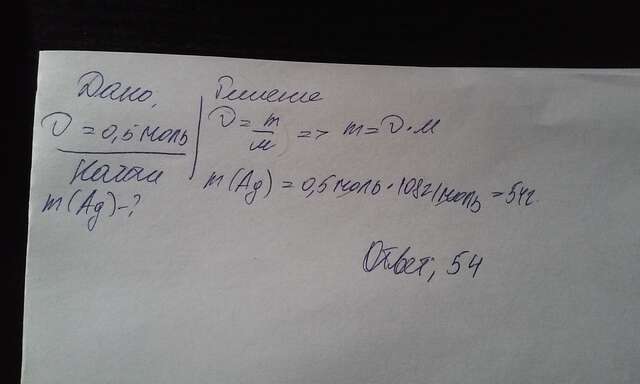 Дано,
ν = 0,5 моль
Найти
m(Ag)-?
Решение
ν = m/м => m = ν·м
m(Ag) = 0,5 моль · 108 г/моль = 54г
Ответ; 54